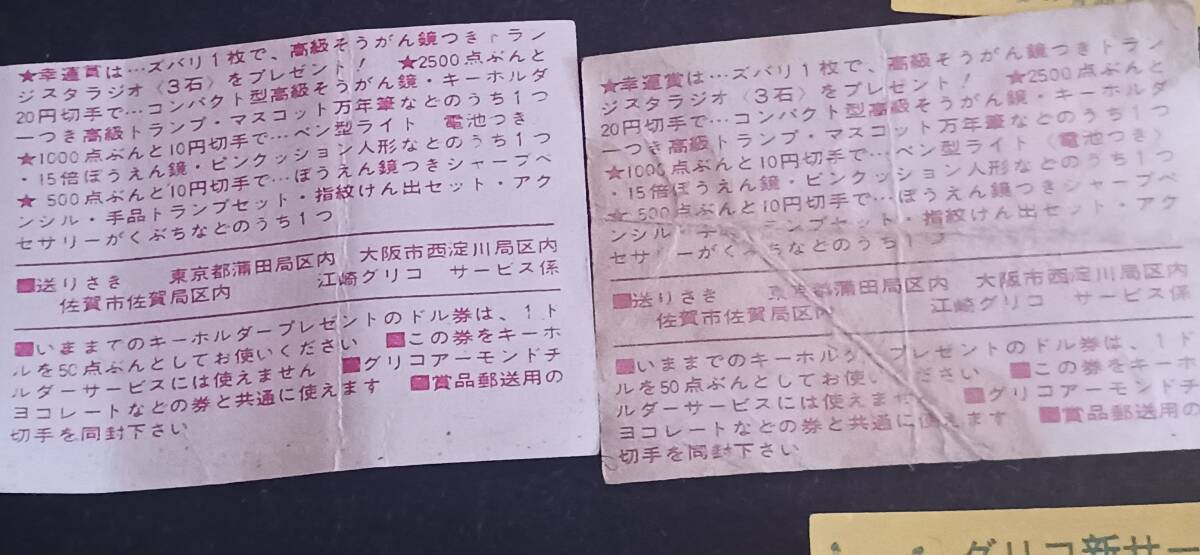 ★幸運賞は…ズバリ1枚で、高級そうがん鏡つきトラン
ジスタラジオ〈3石〉をプレゼント! ★2500点ぶんと
20円切手で…コンパクト型高級そうがん鏡・キーホルダ
ーつき高級トランプ・マスコット万年筆などのうち1つ
★1000点ぶんと10円切手で…ペン型ライト 電池つき
・15倍ぼうえん鏡・ピンクッション人形などのうち1つ
★500点ぶんと10円切手で…ぼうえん鏡つきシャープペ
ンシル・手品トランプセット・指紋けん出セット・アク
セサリーがくぶちなどのうち1つ
■送りさき 東京都蒲田局区内 大阪市西淀川局区内
佐賀市佐賀局区内 江崎グリコ サービス係
■いままでのキーホルダープレゼントのドル券は、1ド
ルを50点ぶんとしてお使いください ■この券をキーホ
ルダーサービスには使えません ■グリコアーモンドチ
ヨコレートなどの券と共通に使えます ■賞品郵送用の
切手を同封下さい
★幸運賞は…ズバリ1枚で、高級そうがん鏡つきトラン
ジスタラジオ〈3石〉をプレゼント! ★2500点ぶんと
20円切手で…コンパクト型高級そうがん鏡・キーホルダ
ーつき高級トランプ・マスコット万年筆などのうち1つ
★1000点ぶんと10円切手で…ペン型ライト〈電池つき〉
・15倍ぼうえん鏡・ピンクッション人形などのうち1つ
★500点ぶんと10円切手で…ぼうえん鏡つきシャープペ
ンシル・手品トランプセット・指紋けん出セット・アク
セサリーがくぶちなどのうち1つ
■送りさき 東京都蒲田局区内 大阪市西淀川局区内
佐賀市佐賀局区内 江崎グリコ サービス係
■いままでのキーホルダープレゼントのドル券は、1ド
ルを50点ぶんとしてお使いください ■この券をキーホ
ルダーサービスには使えません ■グリコアーモンドチ
ヨコレートなどの券と共通に使えます ■賞品郵送用の
切手を同封下さい
グリコ新サー